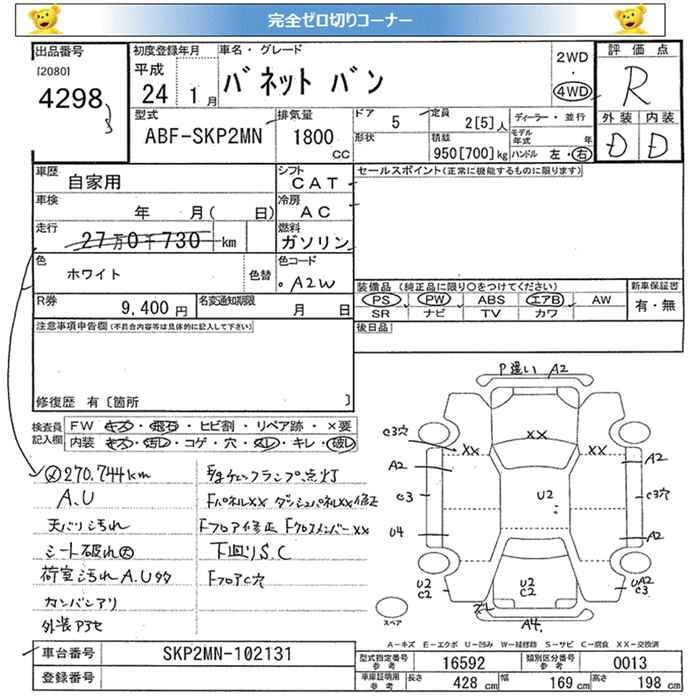 完全ゼロ切りコーナー
出品番号
[2080]
4298
初度登録年月
平成
24 1月
車名・グレード
バネット バン
2WD
・
4WD
評価点
R
型式
ABF-SKP2MN
排気量
1800
CC
ドア
5
形状
定員
2[5]人
積載
950[700]kg
ディーラー・並行
モデル年式 年
ハンドル 左・右
外装 内装
D D
車歴
自家用
シフト
CAT
セールスポイント(正常に機能するものに限ります)
車検
年 月( 日)
冷房
AC
走行
27万0千730km
燃料
ガソリン
色
ホワイト
色替
色コード
A2W
装備品 (純正品に限り○をつけてください)
PS PW ABS エアB AW
SR ナビ TV カワ
新車保証書
有・無
R券
9,400円
名変通知期限
月 日
後日品
注意事項申告欄(不具合内容等は具体的に記入して下さい)
修復歴 有〔箇所 〕
検査員記入欄
FW キズ・飛石・ヒビ割・リペア跡・×要
内装 キズ・汚レ・コゲ・穴・スレ・キレ・破レ
270,744km
A.U
天バリ汚れ
シート破れ大
荷室汚れA.U多
カンバンアリ
外装アセ
チェックランプ点灯
FパネルXX ダッシュパネルXX修正
Fフロア修正 FクロスメンバーXX
下廻りS.C
FフロアC穴
P違い A2
C3穴
XX
XX
XX
A2
A2
C3
U2
C3穴
U4
A2
U2
C2
U2
C2
UA2
C3
A4
スペア
A−キズ E−エクボ U−凹み W−補修跡 S−サビ C−腐食 XX−交換済
車台番号
SKP2MN-102131
登録番号
型式指定番号
参考
16592
類別区分番号
参考
0013
車庫証明用
参考
長さ
428 cm
幅
169 cm
高さ
198 cm